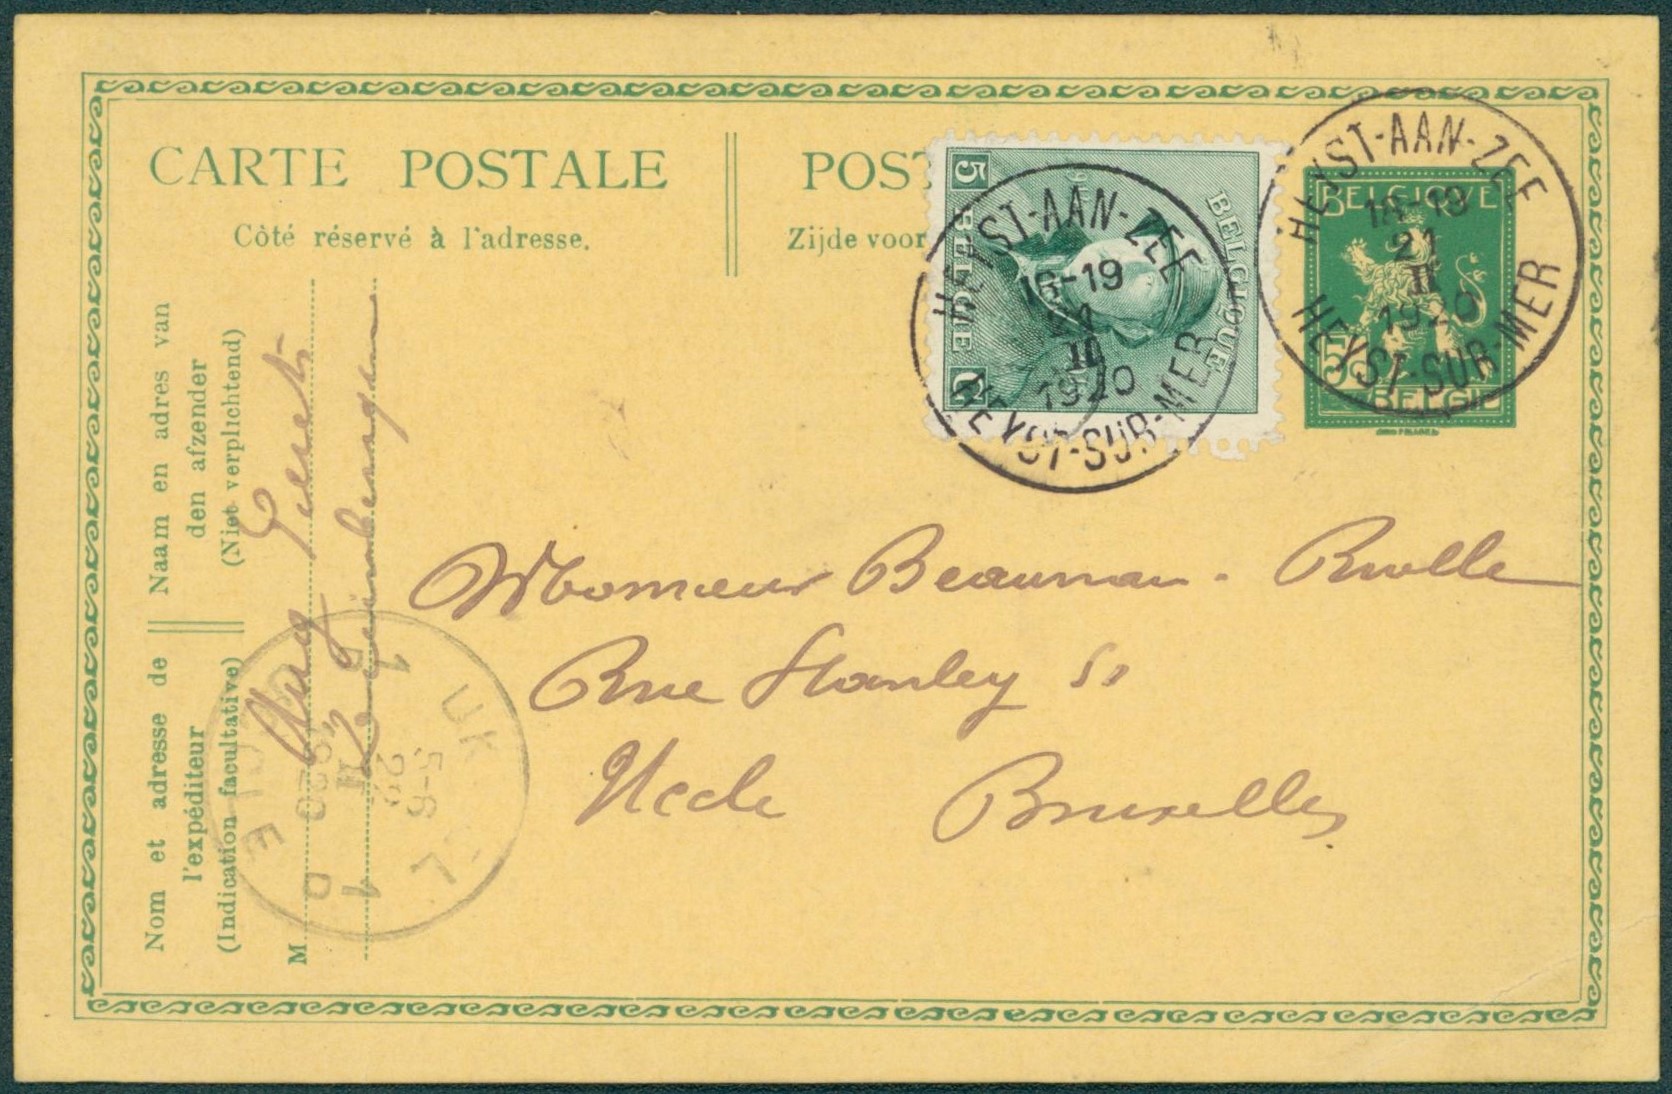 CARTE POSTALE
Côté réservé à l'adresse.
POST
Zijde voor
5 BELGIQUE
BELGIË
HEYST-AAN-ZEE
18-19
21
II
1920
HEYST-SUR-MER
BELGIQUE
5c
BELGIË
HEYST-AAN-ZEE
18-19
21
II
1920
HEYST-SUR-MER
Naam en adres van
den afzender
(Niet verplichtend)
Nom et adresse de
l'expéditeur
(Indication facultative)
M
Monsieur
Rue Stanley 51
Uccle Bruxelles
1 D
UKKEL
5-6
22
II
1920
UCCLE
1 D